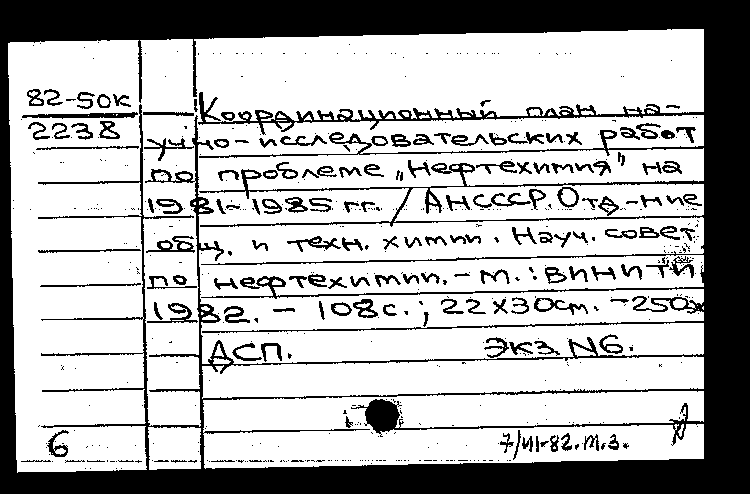 82-50к
2238
Координационный план на-
учно-исследовательских работ
по проблеме „Нефтехимия" на
1981-1985 гг. / АНСССР. Отд-ние
общ. и техн. химии. Науч. совет
по нефтехимии. - М.: ВИНИТИ,
1982. - 108с.; 22х30см. - 250э
ДСП. Экз. N6.
6 7/VII-82. т.з.